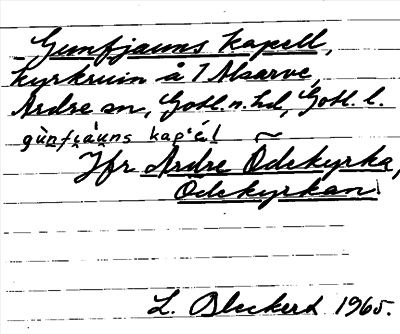 Gunfjauns kapell,
kyrkruin å 1 Alsarve,
Ardre sn, Gotl. n. hd, Gotl. l.
Jfr Ardre Ödekyrka,
Ödekyrkan
L. Bleckerd 1965.